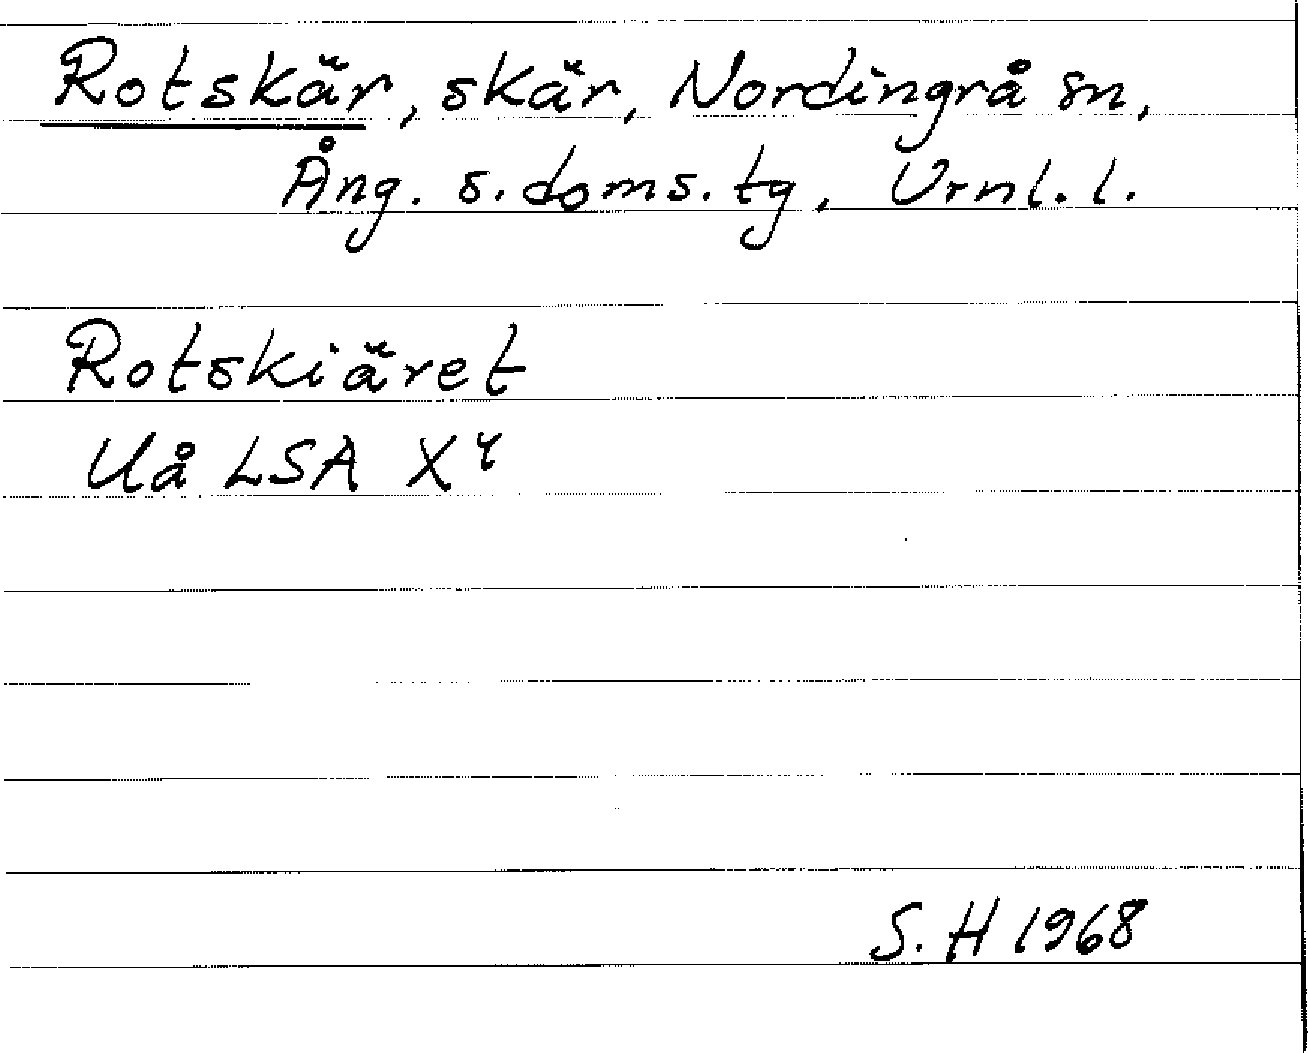 Rotskär, skär, Nordingrå sn,
Ång. s. doms. tg, Vrnl. l.
Rotskiäret
Uå LSA X 4
S. H 1968